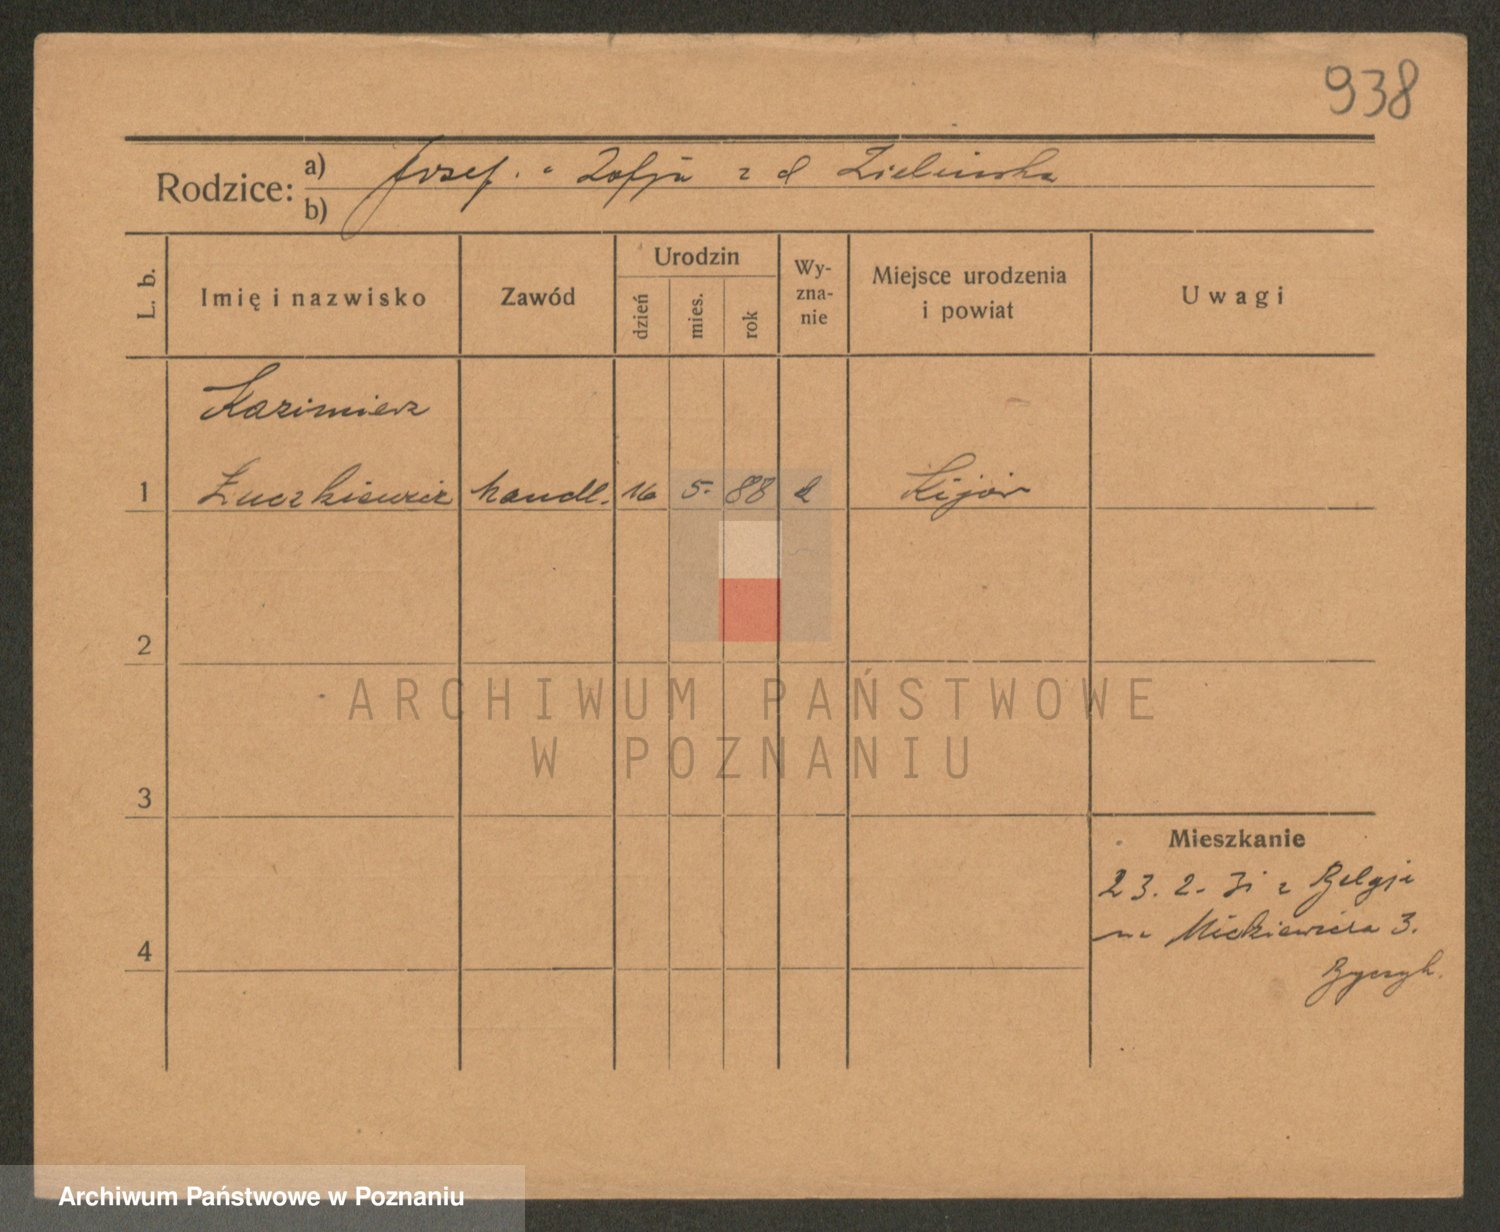 938
Rodzice: a) Josef. i Zofja z d Zielinska
b)
L. b.
Imię i nazwisko
Zawód
Urodzin
dzień
mies.
rok
Wy-
zna-
nie
Miejsce urodzenia
i powiat
Uwagi
Kazimierz
1 Żuczkiewicz handl. 16 5. 88 Kijów
2
ARCHIWUM PAŃSTWOWE
W POZNANIU
3
Mieszkanie
23. 2. 31 z Belgji
na Mickiewicza 3.
4
Archiwum Państwowe w Poznaniu